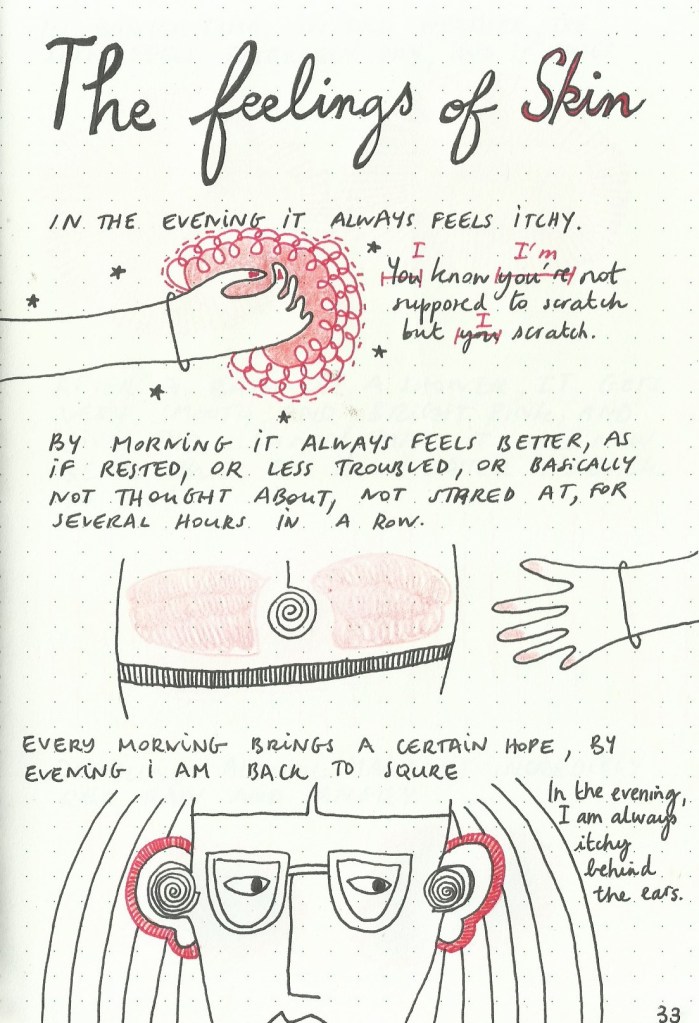 The feelings of Skin
IN THE EVENING IT ALWAYS FEELS ITCHY.
I I'm
You know you're not
supposed to scratch
I
but you scratch.
BY MORNING IT ALWAYS FEELS BETTER, AS
IF RESTED, OR LESS TROUBLED, OR BASICALLY
NOT THOUGHT ABOUT, NOT STARED AT, FOR
SEVERAL HOURS IN A ROW.
EVERY MORNING BRINGS A CERTAIN HOPE, BY
EVENING I AM BACK TO SQURE
In the evening,
I am always
itchy
behind
the ears.
33